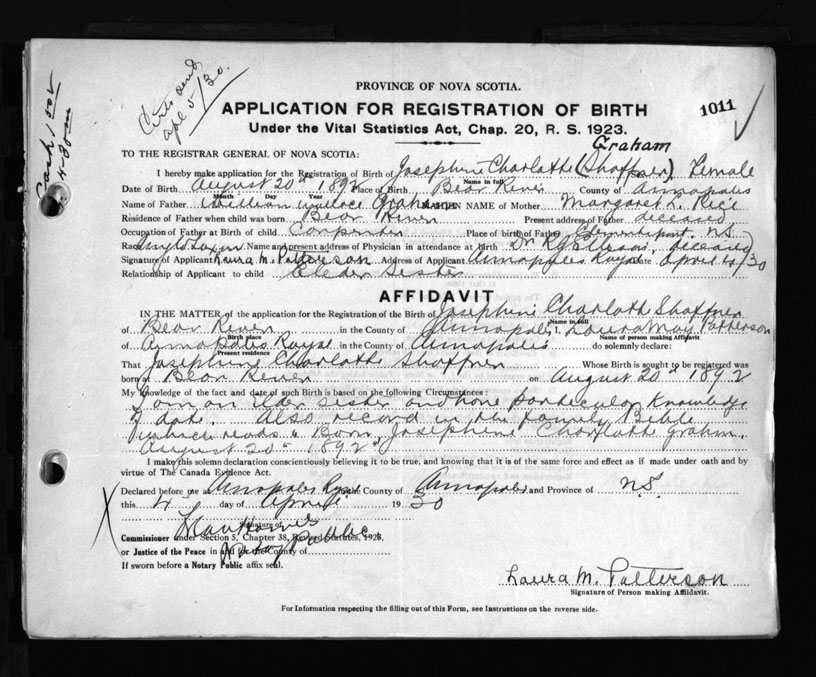 Certs send
apl 5/30.
Cash 1.00
4-30
PROVINCE OF NOVA SCOTIA.
APPLICATION FOR REGISTRATION OF BIRTH 1011
Under the Vital Statistics Act, Chap. 20, R. S. 1923.
Graham
TO THE REGISTRAR GENERAL OF NOVA SCOTIA:
I hereby make application for the Registration of Birth of Josephine Charlotte (Shaffner) Female
Name in full
Date of Birth August 20th 1892 Place of Birth Bear River County of Annapolis
Month Day Year
Name of Father William Wallace Graham MAIDEN NAME of Mother Margaret L. Rice
Residence of Father when child was born Bear River Present address of Father deceased
Occupation of Father at Birth of child Carpenter Place of birth of Father Clementsport, N.S.
Race Anglo Saxon Name and present address of Physician in attendance at birth Dr. deceased
Signature of Applicant Laura M. Patterson Address of Applicant Annapolis Royal Date April 4/30
Relationship of Applicant to child Elder Sister
AFFIDAVIT
IN THE MATTER of the application for the Registration of the Birth of Josephine Charlotte Shaffner
Name in full
of Bear River in the County of Annapolis, I, Laura May Patterson
Birth place Name of person making Affidavit
of Annapolis Royal in the County of Annapolis do solemnly declare:
Present residence
That Josephine Charlotte Shaffner Whose Birth is sought to be registered was
born at Bear River on August 20th 1892
My knowledge of the fact and date of such Birth is based on the following Circumstances:
I am an elder sister and have particular knowledge
of date. Also record in the family Bible
which reads "Born, Josephine Charlotte Graham.
August 20th 1892"
I make this solemn declaration conscientiously believing it to be true, and knowing that it is of the same force and effect as if made under oath and by
virtue of The Canada Evidence Act.
Declared before me at Annapolis Royal the County of Annapolis and Province of N.S.
this 4 day of April 1930
Signature of
Commissioner under Section 5, Chapter 38, Revised Statutes, 1923, Notary Public
or Justice of the Peace in and for the County of
If sworn before a Notary Public affix seal.
Laura M. Patterson
Signature of Person making Affidavit.
For Information respecting the filling out of this Form, see Instructions on the reverse side.